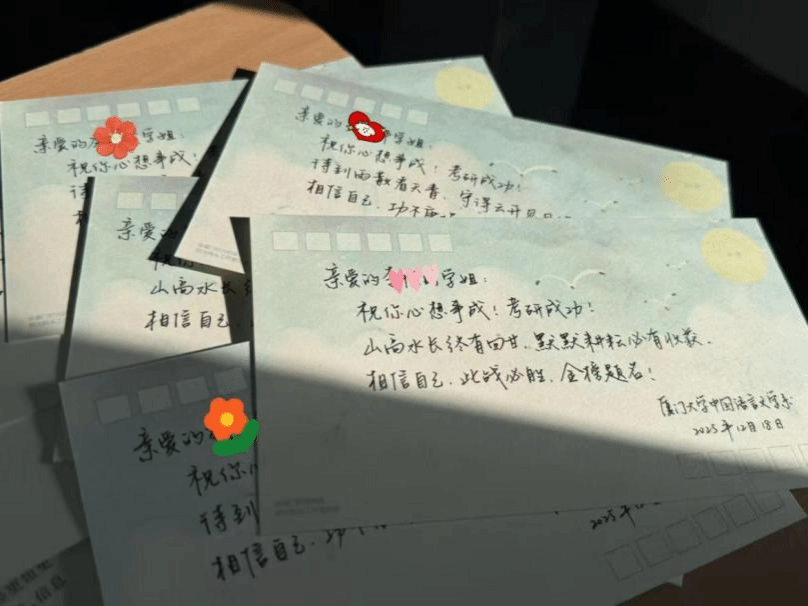 亲爱的
学姐:
祝你心想事成!
待
相
亲爱的
学姐:
祝你心想事成!考研成功!
待到雨散看天青,守得云开见月
相信自己,功不唐
亲爱的
祝你
山高水长终
相信自己,
亲爱的李
学姐:
祝你心想事成!考研成功!
山高水长终有回甘,默默耕耘必有收获.
相信自己,此战必胜,金榜题名!
厦门大学中国语言文学系
2025年12月18日
亲爱的
祝你心
待到
相信自己,功不
2025年12
信息